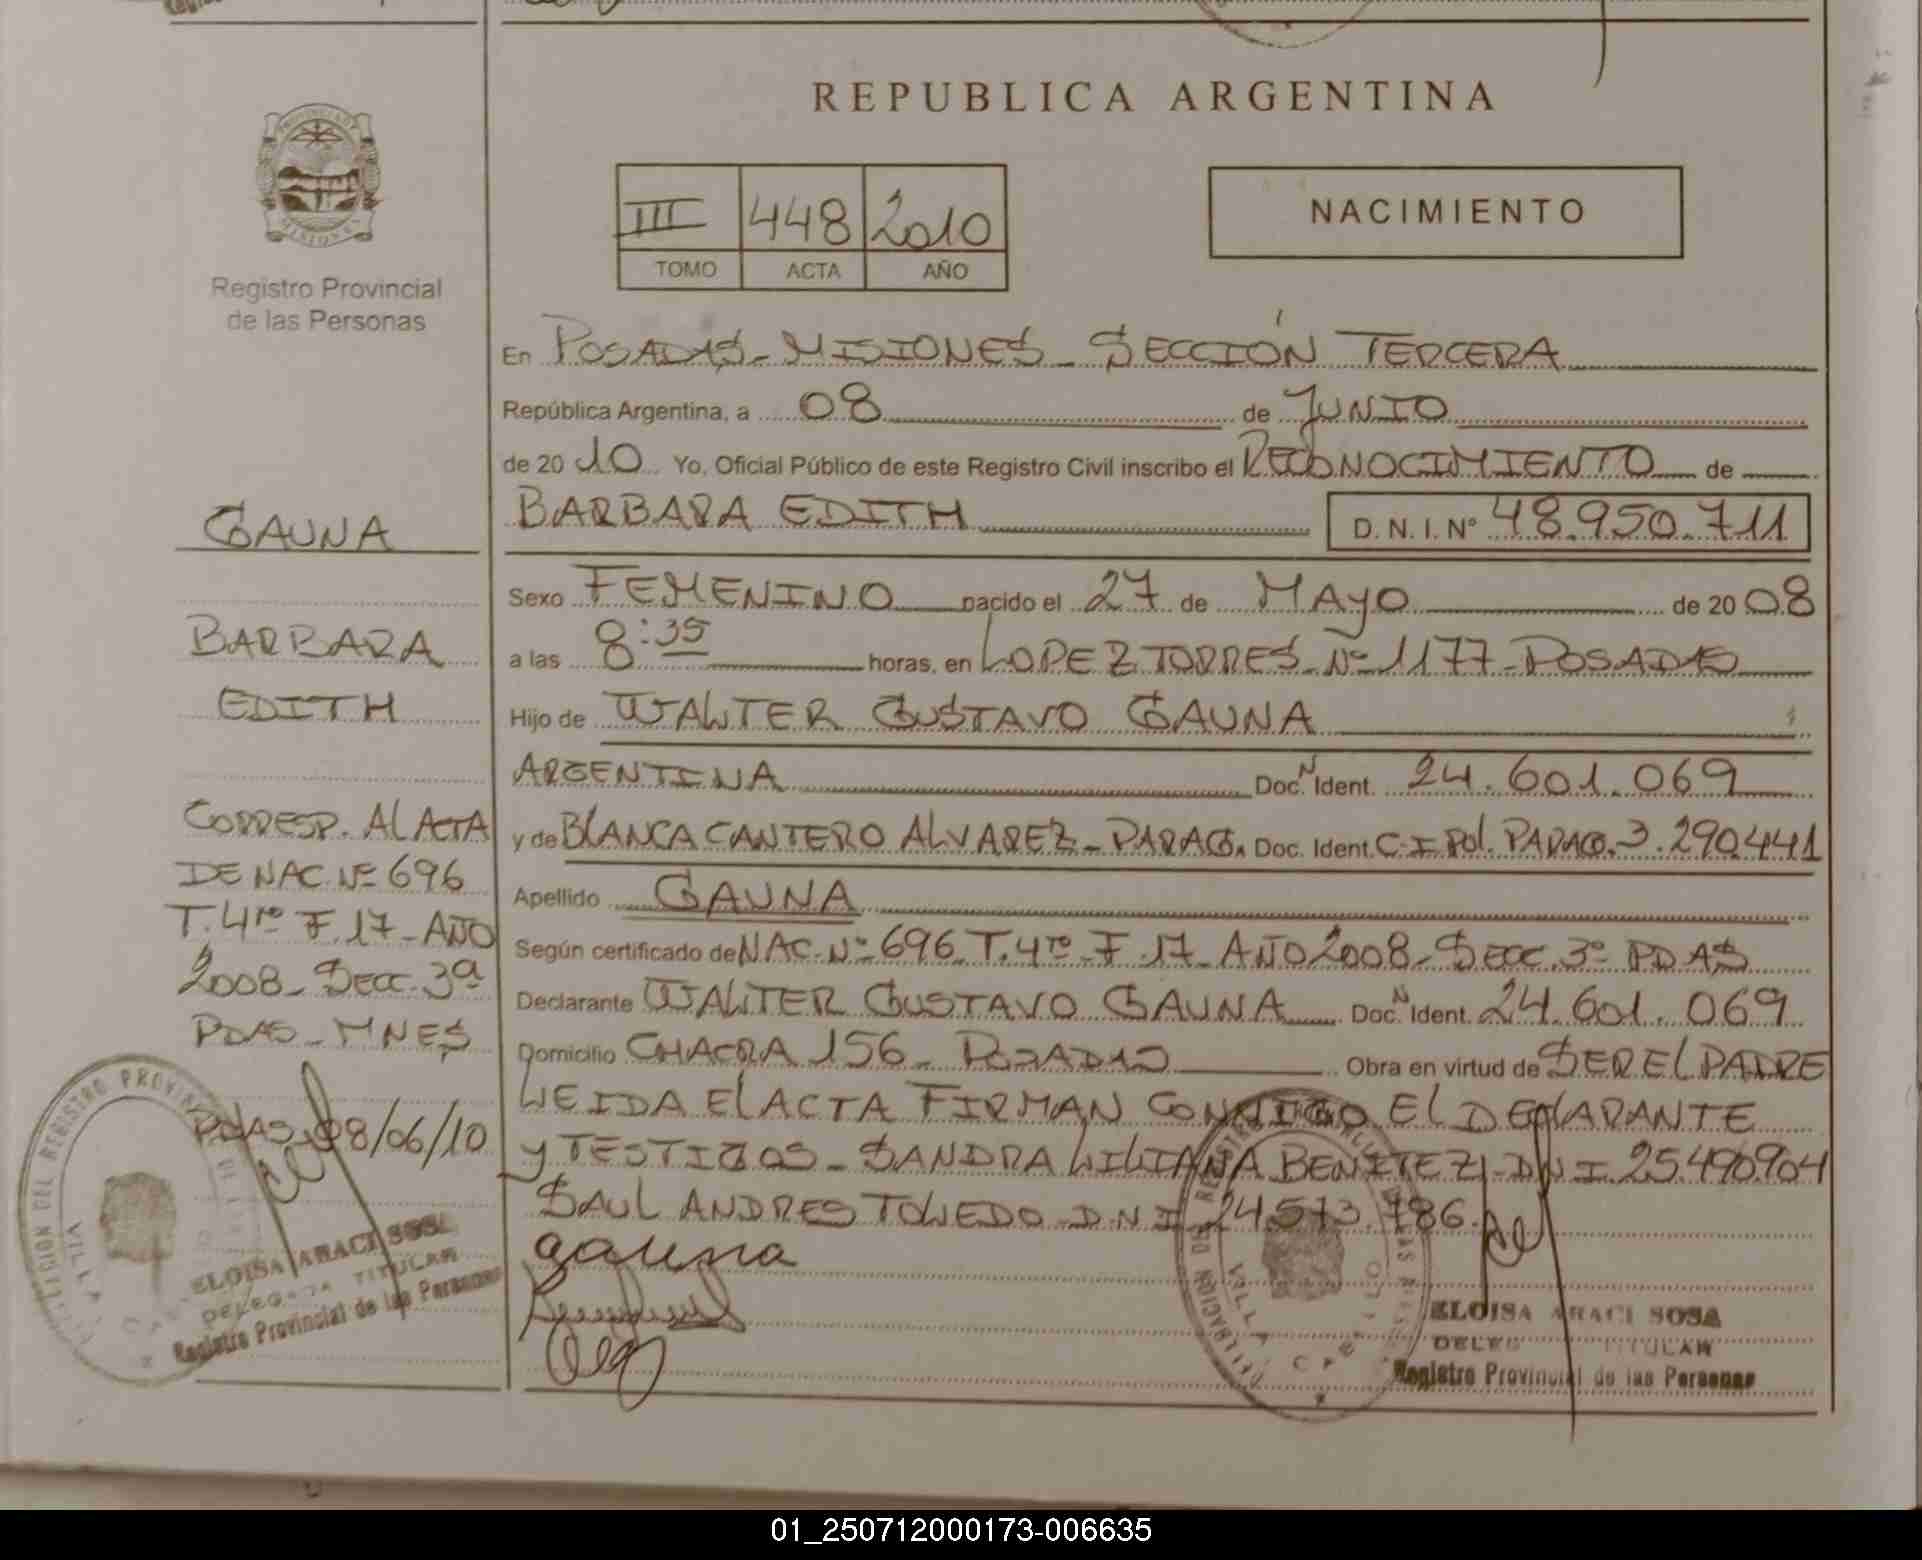 REPUBLICA ARGENTINA
III 448 2010
TOMO ACTA AÑO
NACIMIENTO
Registro Provincial
de las Personas
GAUNA
BARBARA
EDITH
CORRESP. AL ACTA
DE NAC. Nº 696
T. 4to F. 17 - AÑO
2008 - SECC. 3ª
PDAS - MNES
PDAS, 08/06/10
ELOISA ARACI SOSA
DELEGADA TITULAR
Registro Provincial de las Personas
En POSADAS - MISIONES - SECCIÓN TERCERA
República Argentina, a 08 de JUNIO
de 2010 Yo, Oficial Público de este Registro Civil inscribo el RECONOCIMIENTO de
BARBARA EDITH D.N.I. Nº 48.950.711
Sexo FEMENINO nacido el 27 de MAYO de 2008
a las 8:35 horas, en LOPEZ TORRES - Nº 1177 - POSADAS
Hijo de WALTER GUSTAVO GAUNA
ARGENTINA Doc. N Ident. 24.601.069
y de BLANCA CANTERO ALVAREZ - PARAG. Doc. Ident. C.I. Pol. PARAG. 3.290.441
Apellido GAUNA
Según certificado de NAC. Nº 696 T. 4to F. 17 AÑO 2008 - SECC. 3º PDAS
Declarante WALTER GUSTAVO GAUNA Doc. N Ident. 24.601.069
Domicilio CHACRA 156 - POSADAS Obra en virtud de SER EL PADRE
LEIDA EL ACTA FIRMAN CONMIGO EL DECLARANTE
y TESTIGOS - SANDRA LILIANA BENITEZ - D.N.I. 25.490.904
SAUL ANDRES TOLEDO D.N.I. 24.573.786.
gauna
ELOISA ARACI SOSA
TITULAR
Registro Provincial de las Personas
01_250712000173-006635